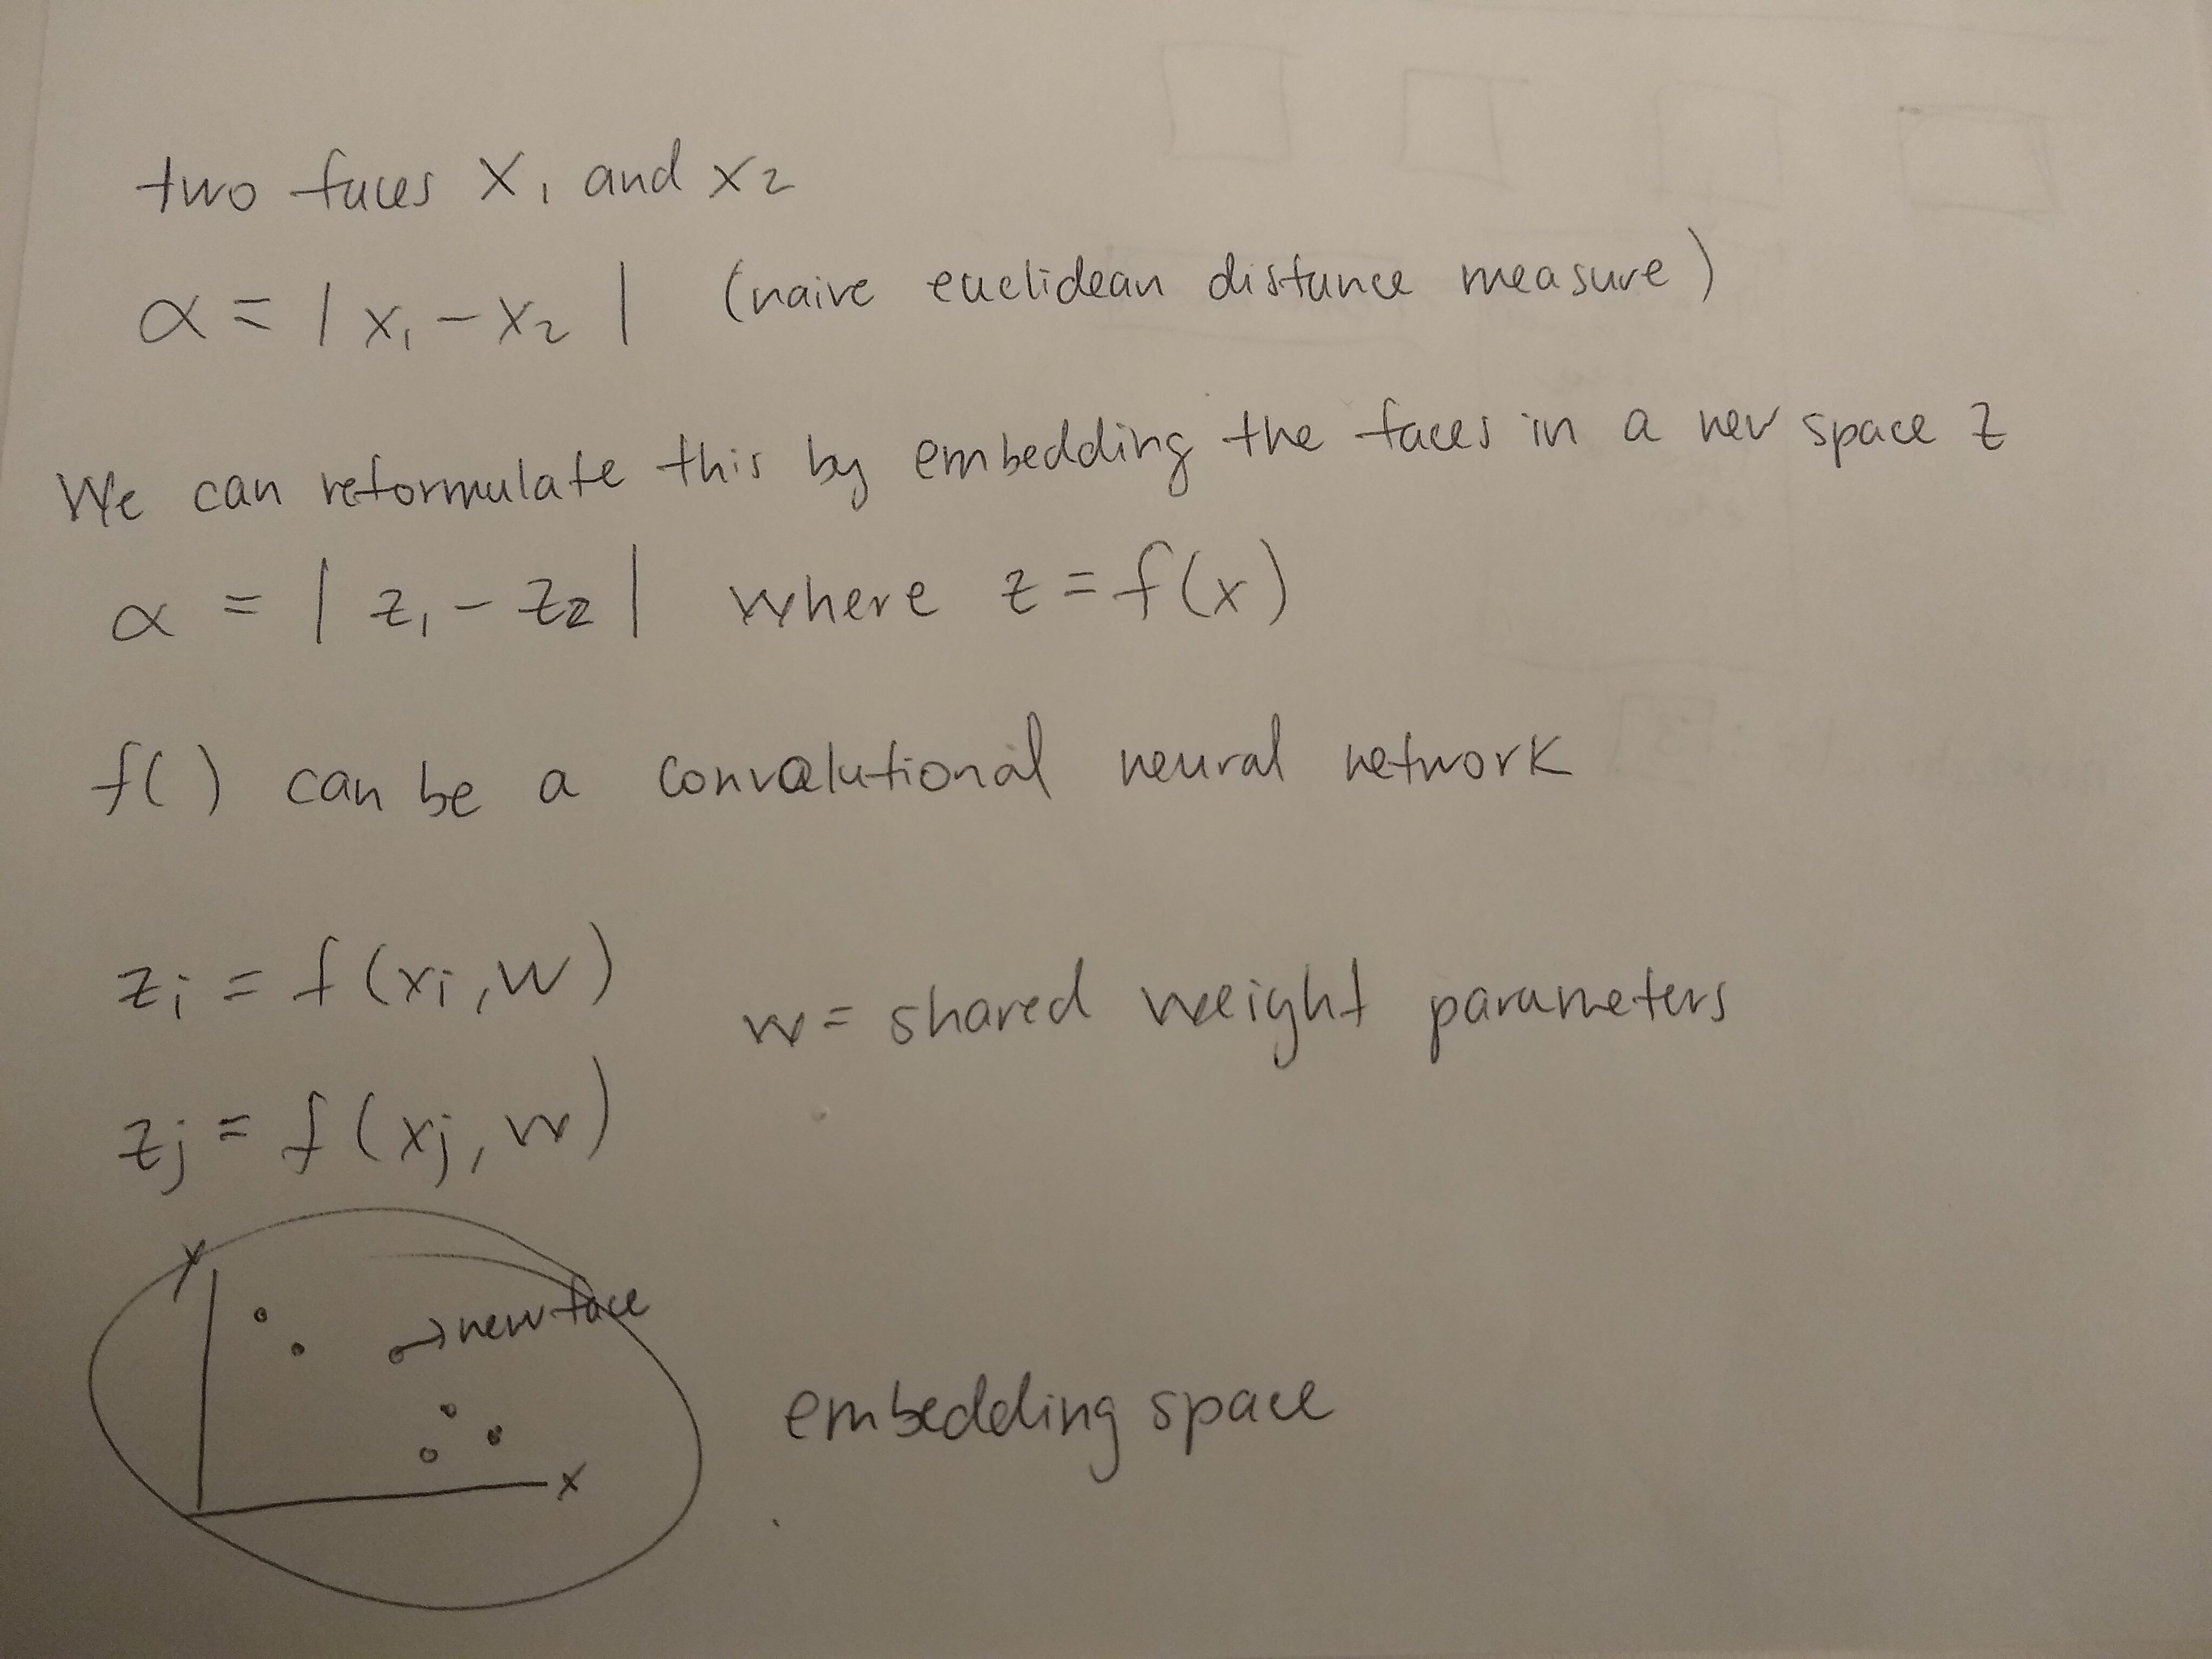 two faces x₁ and x₂
α = | x₁ - x₂ | (naive euclidean distance measure)
We can reformulate this by embedding the faces in a new space z
α = | z₁ - z₂ | where z = f(x)
f() can be a convolutional neural network
zi = f(xi, w)
w = shared weight parameters
zj = f(xj, w)
y
→ new face
x
embedding space